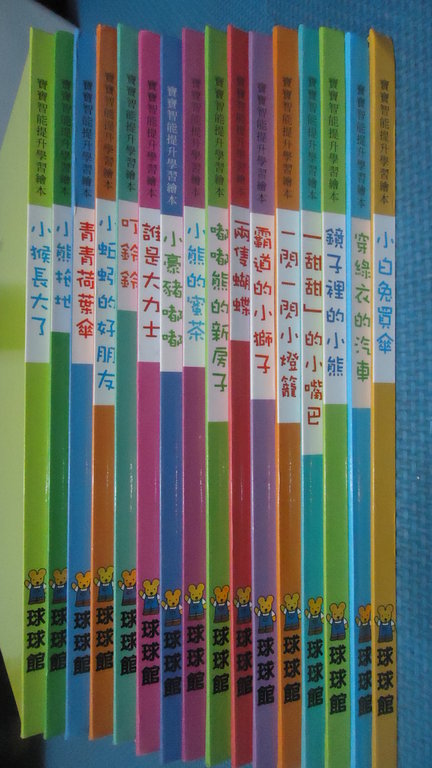 寶寶智能提升學習繪本 小猴長大了 球球館
寶寶智能提升學習繪本 小熊拖地 球球館
寶寶智能提升學習繪本 青青荷葉傘 球球館
寶寶智能提升學習繪本 小蚯蚓的好朋友 球球館
寶寶智能提升學習繪本 叮鈴鈴 球球館
寶寶智能提升學習繪本 誰是大力士 球球館
寶寶智能提升學習繪本 小豪豬嘟嘟 球球館
寶寶智能提升學習繪本 小熊的蜜茶 球球館
寶寶智能提升學習繪本 嘟嘟熊的新房子 球球館
寶寶智能提升學習繪本 兩隻蝴蝶 球球館
寶寶智能提升學習繪本 霸道的小獅子 球球館
寶寶智能提升學習繪本 一閃一閃小燈籠 球球館
寶寶智能提升學習繪本 「甜甜」的小嘴巴 球球館
寶寶智能提升學習繪本 鏡子裡的小熊 球球館
寶寶智能提升學習繪本 穿綠衣的汽車 球球館
寶寶智能提升學習繪本 小白兔買傘 球球館